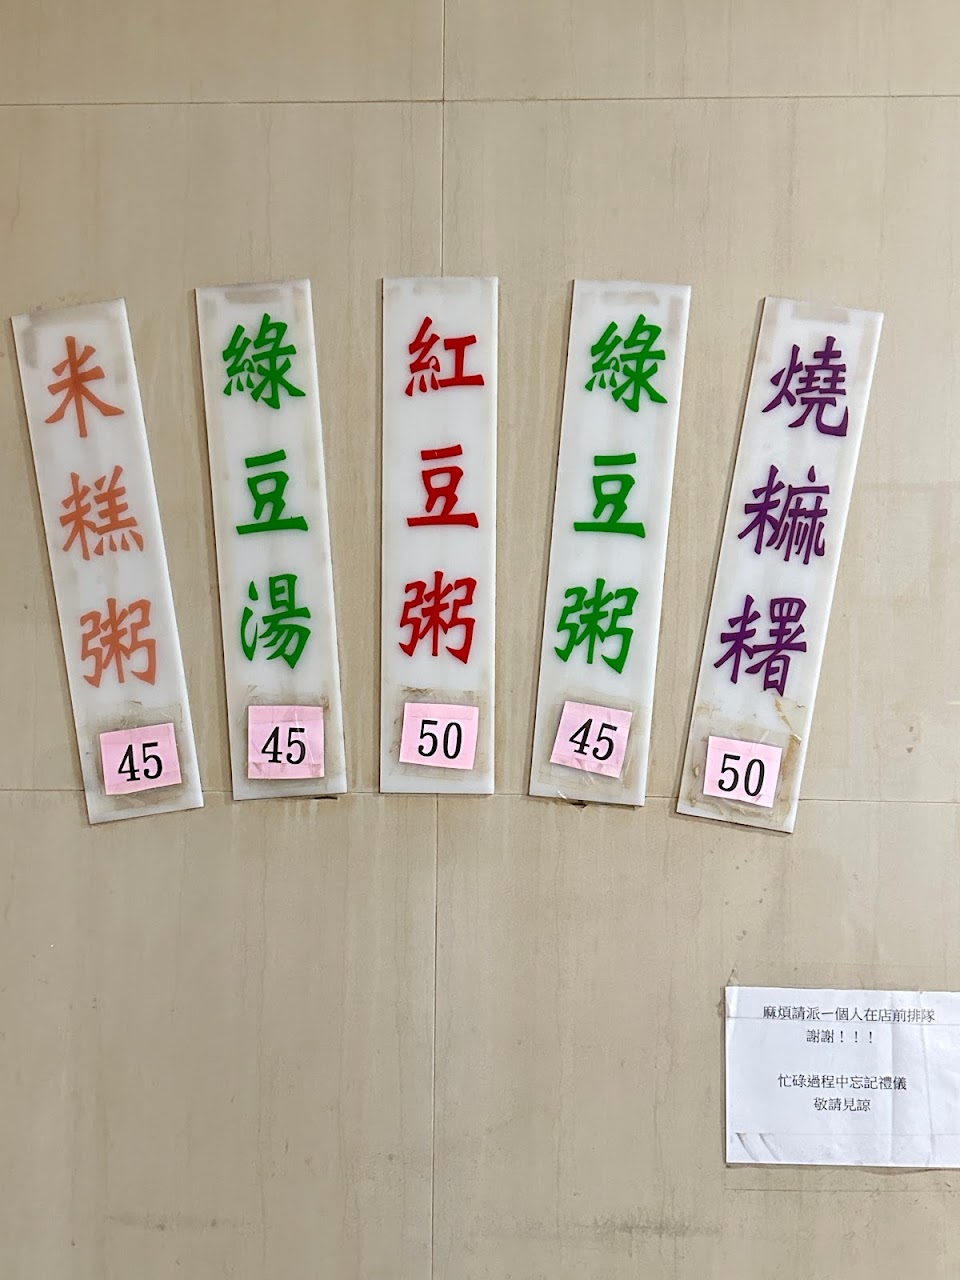 米糕粥
45
綠豆湯
45
紅豆粥
50
綠豆粥
45
燒糜糬
50
麻煩請派一個人在店前排隊
謝謝！！！
忙碌過程中忘記禮儀
敬請見諒